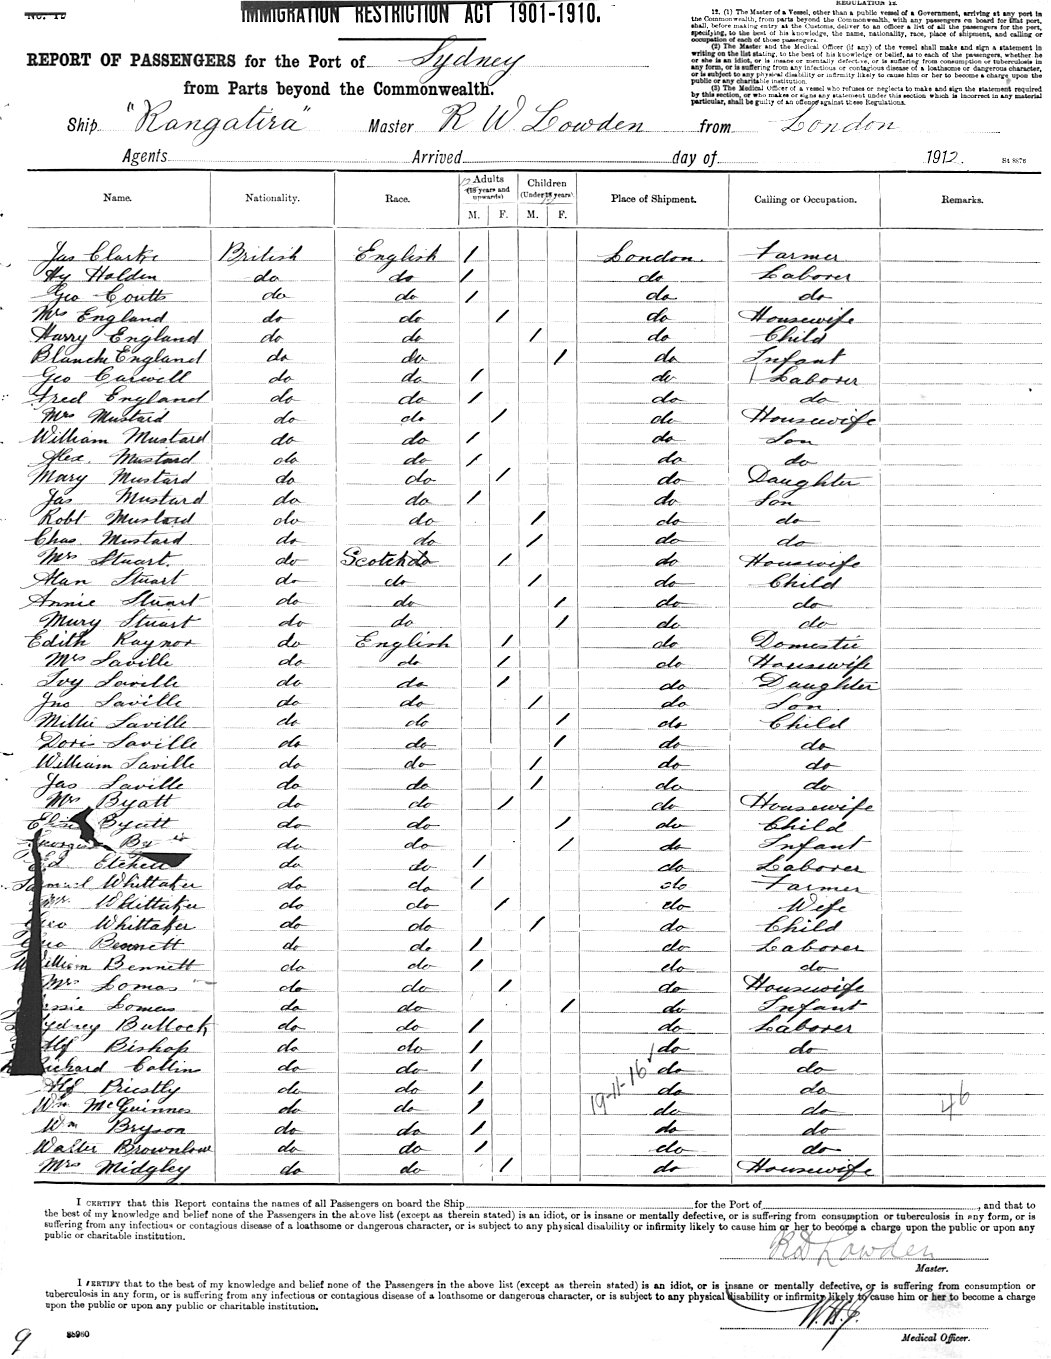 No. 12
IMMIGRATION RESTRICTION ACT 1901-1910.
REGULATION 12.
12. (1) The Master of a Vessel, other than a public vessel of a Government, arriving at any port in
the Commonwealth, from parts beyond the Commonwealth, with any passengers on board for that port,
shall, before making entry at the Customs, deliver to an officer a list of all the passengers for the port,
specifying, to the best of his knowledge, the name, nationality, race, place of shipment, and calling or
occupation of each of those passengers.
(2) The Master and the Medical Officer (if any) of the vessel shall make and sign a statement in
writing on the list stating, to the best of his knowledge or belief, as to each of the passengers, whether he
or she is an idiot, or is insane or mentally defective, or is suffering from consumption or tuberculosis in
any form, or is suffering from any infectious or contagious disease of a loathsome or dangerous character,
or is subject to any physical disability or infirmity likely to cause him or her to become a charge upon the
public or any charitable institution.
(3) The Medical Officer of a vessel who refuses or neglects to make and sign the statement required
by this section, or who makes or signs any statement under this section which is incorrect in any material
particular, shall be guilty of an offence against these Regulations.
REPORT OF PASSENGERS for the Port of Sydney
from Parts beyond the Commonwealth.
Ship "Rangatira" Master R W Lowden from London
Agents Arrived day of 1912. St 8876
Name. Nationality. Race. Adults (15 years and upwards) Children (Under years) Place of Shipment. Calling or Occupation. Remarks.
M. F. M. F.
Jas Clarke British English / London. Farmer
Hy Holden do do / do Laborer
Geo Coutts do do / do do
Mrs England do do / do Housewife
Harry England do do / do Child
Blanche England do do / do Infant
Geo Carwell do do / do Laborer
Fred England do do / do do
Mrs Mustard do do / do Housewife
William Mustard do do / do Son
Alex. Mustard do do / do do
Mary Mustard do do / do Daughter
Jas Mustard do do / do Son
Robt Mustard do do / do do
Chas Mustard do do / do do
Mrs Stuart. do Scotch do / do Housewife
Alan Stuart do do / do Child
Annie Stuart do do / do do
Mary Stuart do do / do do
Edith Raynor do English / do Domestic
Mrs Saville do do / do Housewife
Ivy Saville do do / do Daughter
Jno Saville do do / do Son
Millie Saville do do / do Child
Doris Saville do do / do do
William Saville do do / do do
Jas Saville do do / do do
Mrs Byatt do do / do Housewife
Byatt do do / do Child
By do do / do Infant
Ed Etchell do do / do Laborer
Samuel Whittaker do do / do Farmer
Whittaker do do / do Wife
Geo Whittaker do do / do Child
Bennett do do / do Laborer
William Bennett do do / do do
Mrs Lomas do do / do Housewife
Lomas do do / do Infant
Sydney Bullock do do / do Laborer
Alf Bishop do do / do do
Richard Collins do do / do do
Alf Priestly do do / 19-11-16 do do
Wm McGuinnes do do / do do 46
Wm Bryson do do / do do
Walter Brownlow do do / do do
Mrs Midgley do do / do Housewife
I CERTIFY that this Report contains the names of all Passengers on board the Ship for the Port of , and that to
the best of my knowledge and belief none of the Passengers in the above list (except as therein stated) is an idiot, or is insane or mentally defective, or is suffering from consumption or tuberculosis in any form, or is
suffering from any infectious or contagious disease of a loathsome or dangerous character, or is subject to any physical disability or infirmity likely to cause him or her to become a charge upon the public or upon any
public or charitable institution.
Lowden
Master.
I CERTIFY that to the best of my knowledge and belief none of the Passengers in the above list (except as therein stated) is an idiot, or is insane or mentally defective, or is suffering from consumption or
tuberculosis in any form, or is suffering from any infectious or contagious disease of a loathsome or dangerous character, or is subject to any physical disability or infirmity likely to cause him or her to become a charge
upon the public or upon any public or charitable institution.
Medical Officer.
9